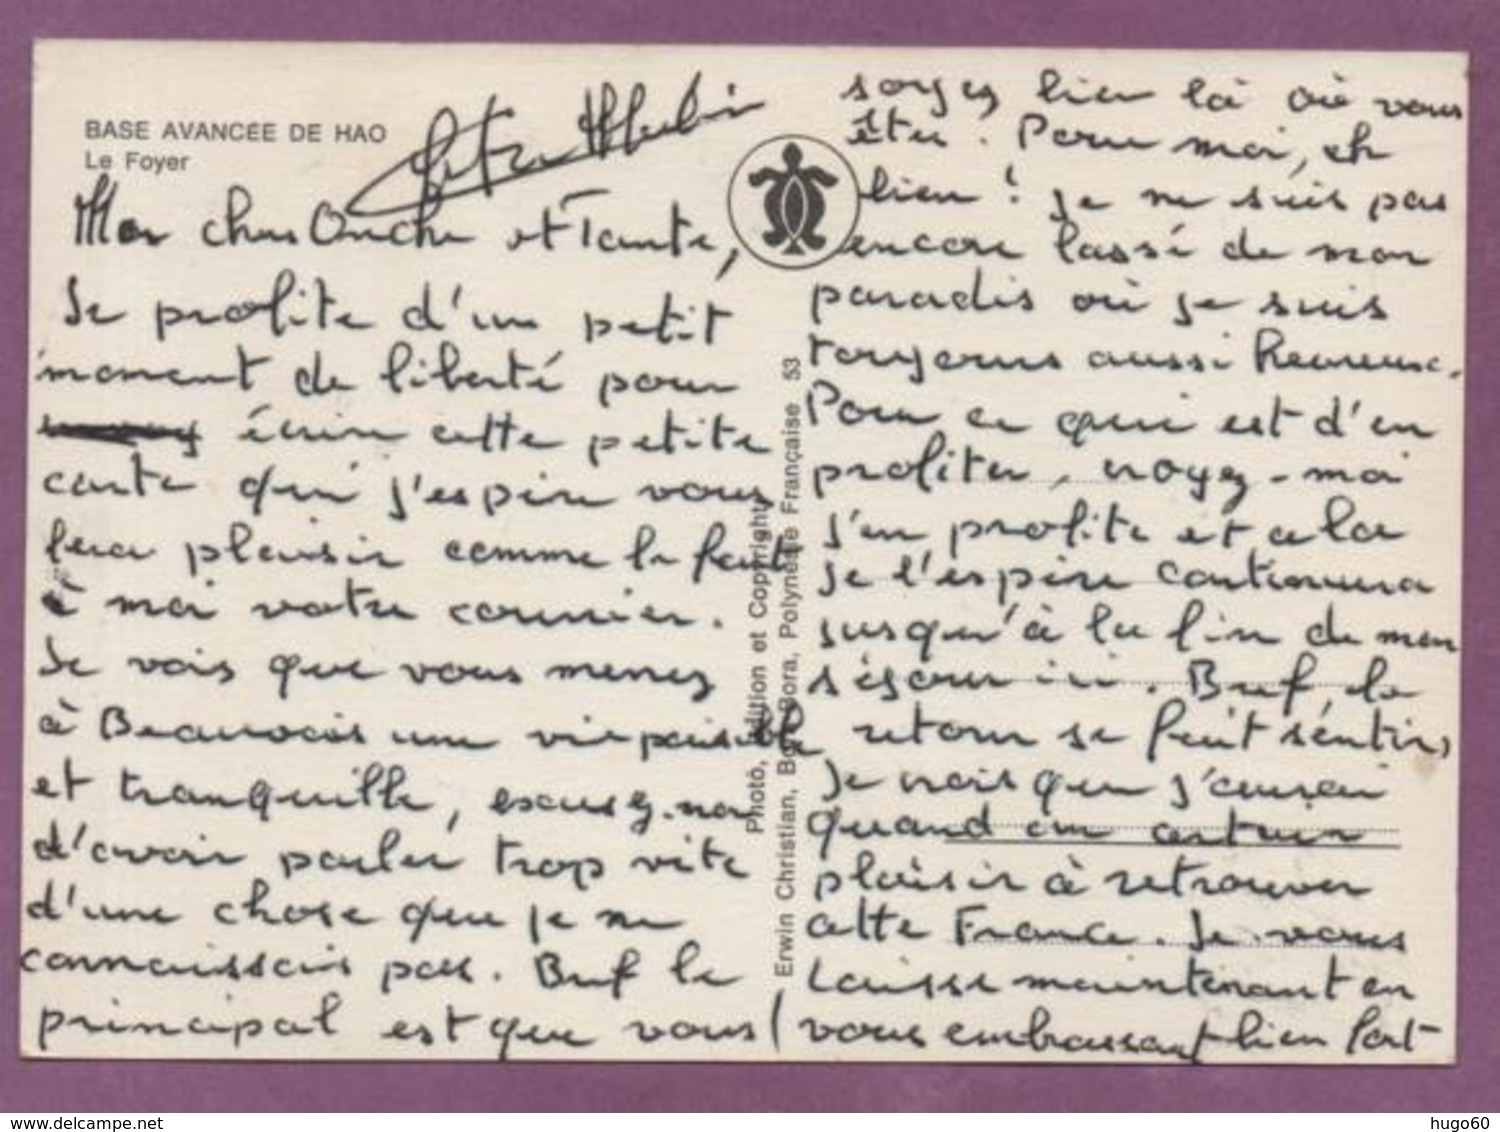 BASE AVANCÉE DE HAO
Le Foyer
Mon cher Oncle et Tante,
Je profite d'un petit
moment de liberté pour
écrire cette petite
carte qui j'espère vous
fera plaisir comme le fait
à moi votre courrier.
Je vois que vous menez
à Beauvais une vie paisible
et tranquille, excusez-moi
d'avoir parler trop vite
d'une chose que je ne
connaissais pas. Bref le
principal est que vous
soyez bien là où vous
êtes. Pour moi, eh
bien! je ne suis pas
encore lassé de mon
paradis où je suis
toujours aussi heureux.
Pour ce qui est d'en
profiter, croyez-moi
j'en profite et cela
je l'espère continuera
jusqu'à la fin de mon
séjour ici. Bref, le
retour se fait sentir,
Je crois que j'aurai
quand un certain
plaisir à retrouver
cette France. Je vous
laisse maintenant en
vous embrassant bien fort
Photo, édition et Copyright
Erwin Christian, Bora Bora, Polynésie Française 53
www.delcampe.net
hugo60